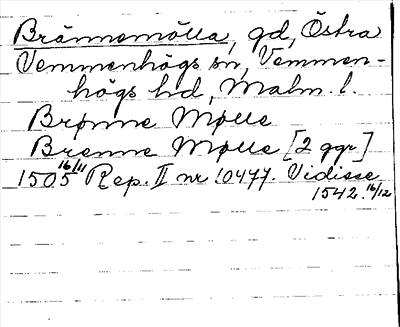 Brännemölla, gd, Östra
Vemmenhögs sn, Vemmen-
högs hd, Malm. l.
Brønne Mølle
Brenne Mølle [2 ggr]
1505 16/11 Rep. II nr 10477. Vidisse
1542. 16/12